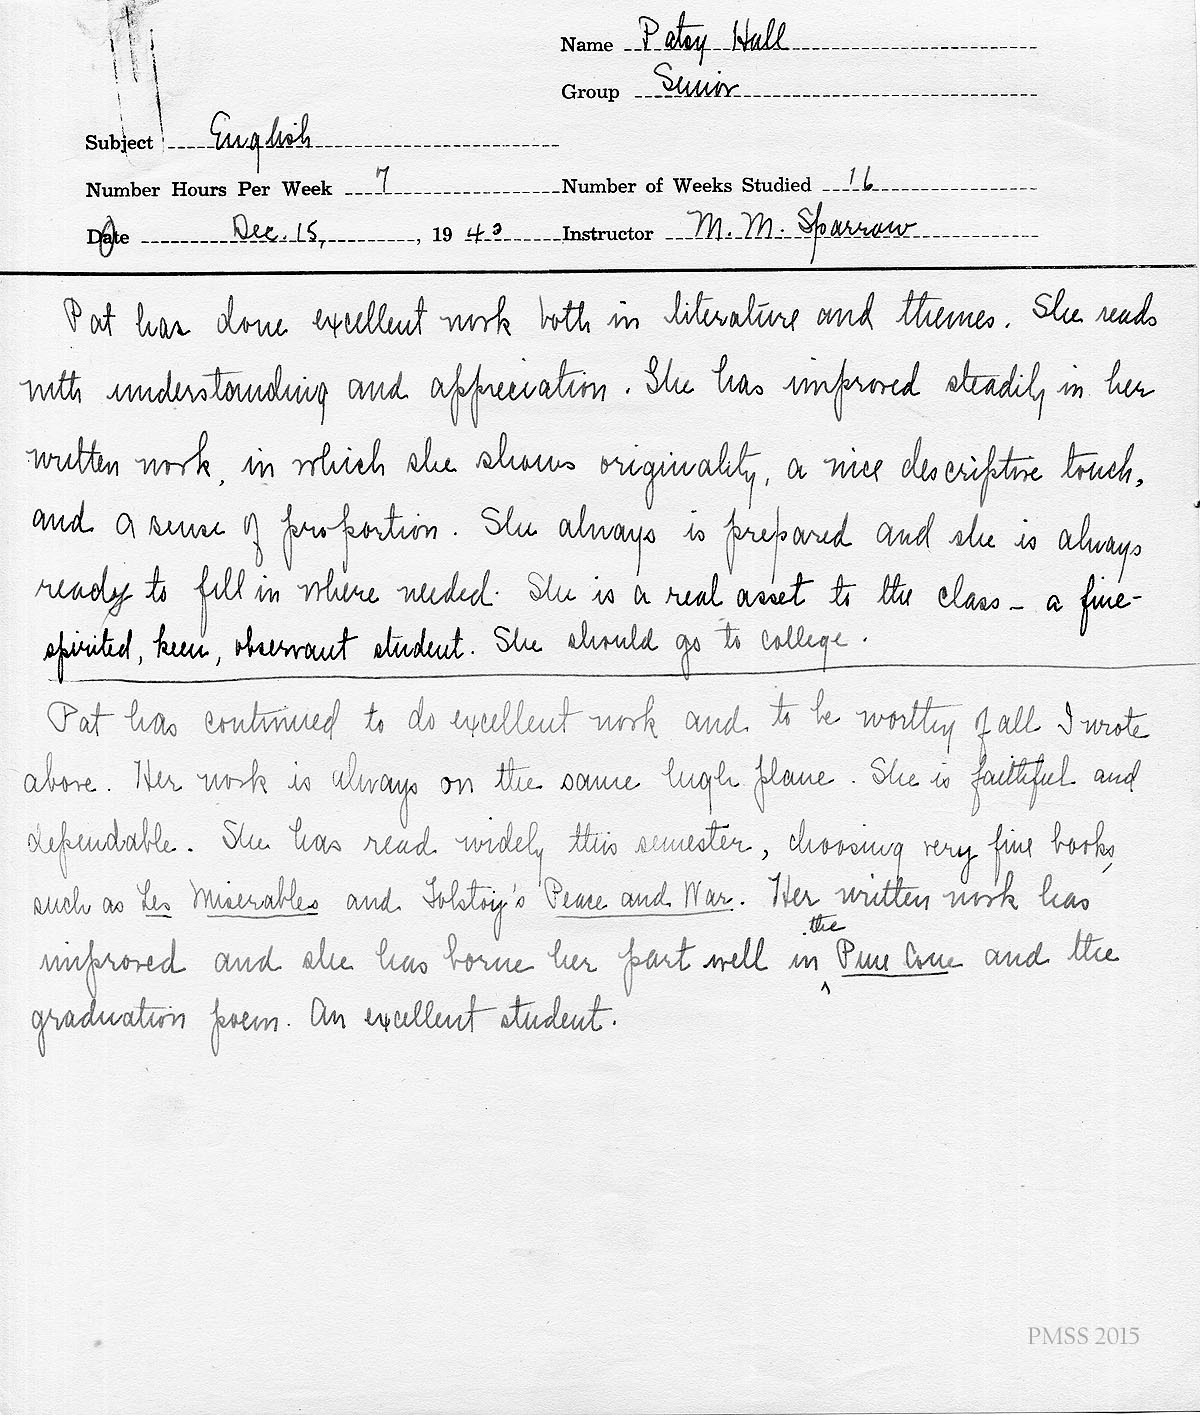 Name Patsy Hall
Group Senior
Subject English
Number Hours Per Week 7 Number of Weeks Studied 16
Date Dec. 15, , 19 43 Instructor M. M. Sparrow
Pat has done excellent work both in literature and themes. She reads
with understanding and appreciation. She has improved steadily in her
written work, in which she shows originality, a nice descriptive touch,
and a sense of proportion. She always is prepared and she is always
ready to fill in where needed. She is a real asset to the class – a fine-
spirited, keen, observant student. She should go to college.
Pat has continued to do excellent work and to be worthy of all I wrote
above. Her work is always on the same high plane. She is faithful and
dependable. She has read widely this semester, choosing very fine books,
such as Les Miserables and Tolstoy's Peace and War. Her written work has
improved and she has borne her part well in the Pine Cone and the
graduation poem. An excellent student.
PMSS 2015